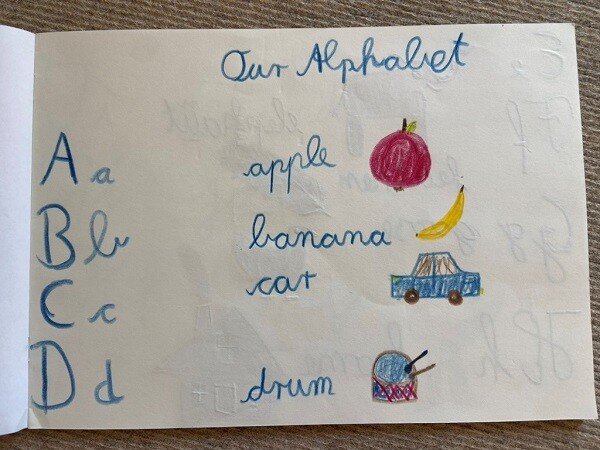 Our Alphabet
A a apple
B b banana
C c car
D d drum